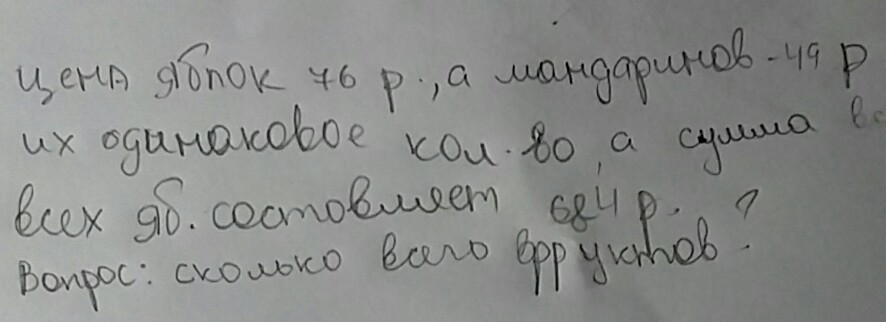 цена яблок 76 р., а мандаринов - 49 р
их одинаковое кол.во, а сумма
всех яб. составляет 684 р.
Вопрос: сколько всего фруктов?